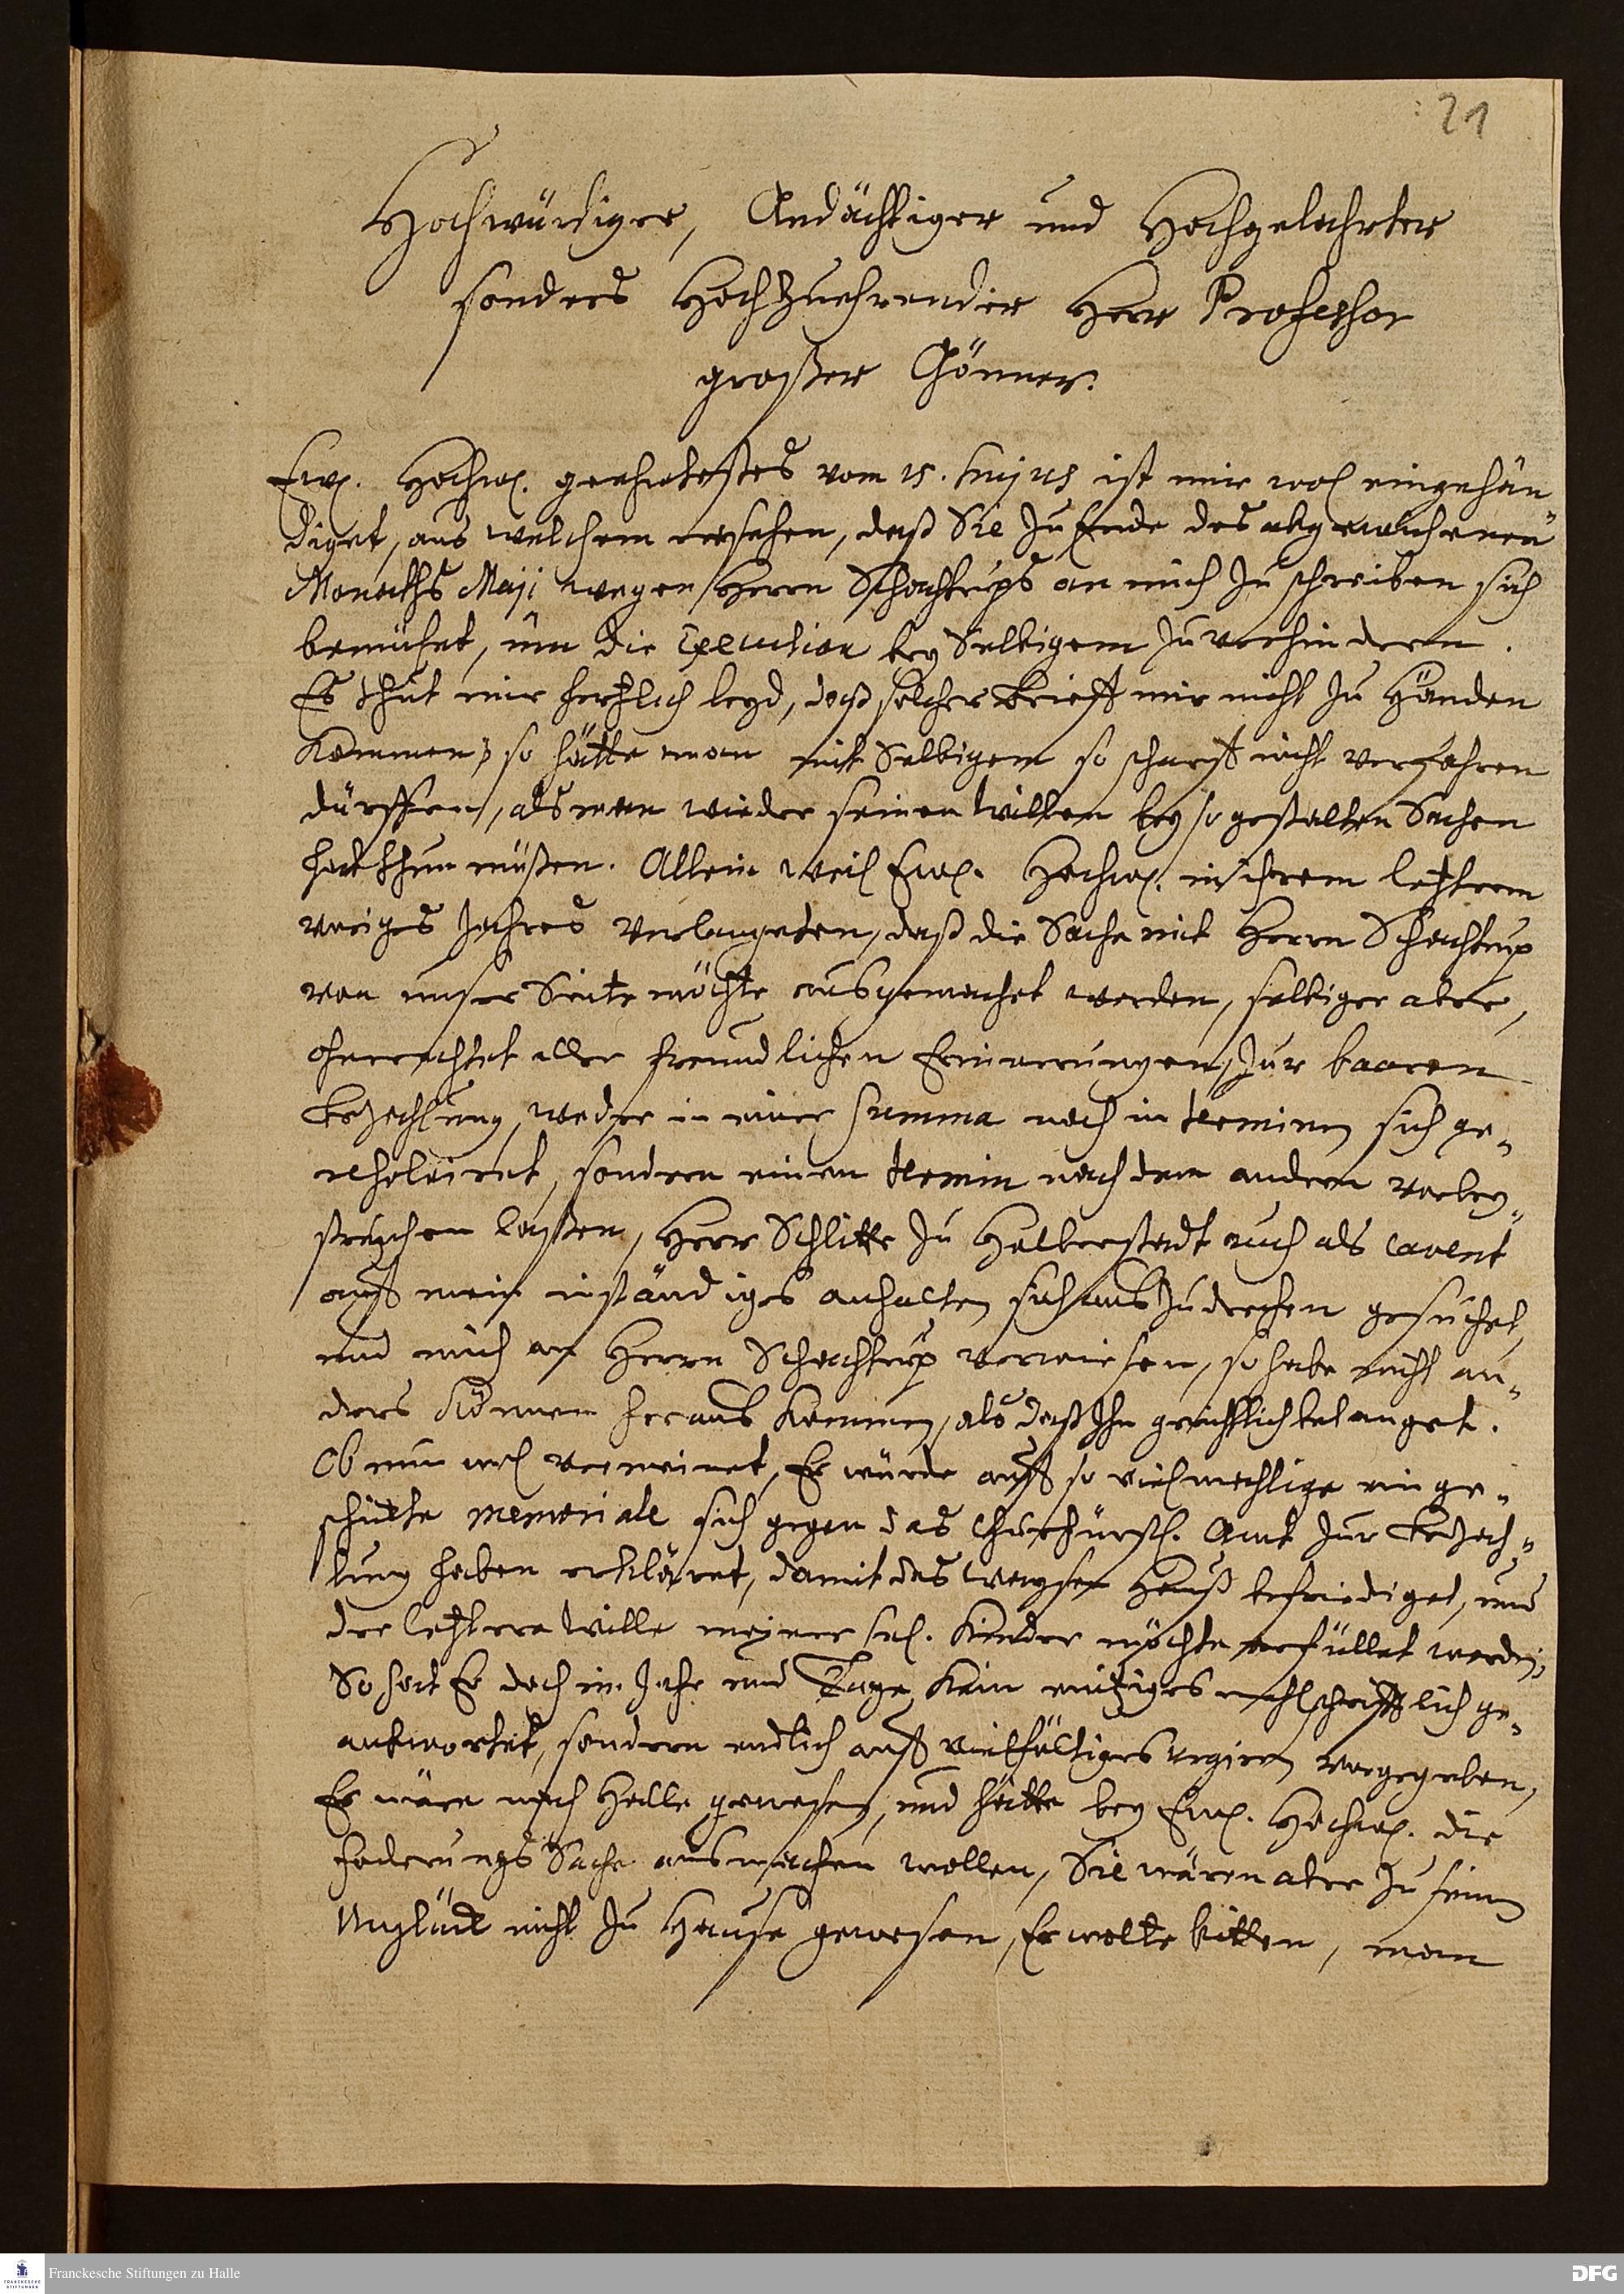 21
Hochwürdiger, Andächtiger und Hochgelahrter
sonders Hochzuehrender Herr Professor
großer Gönner.
Ew. Hochw. geehrtestes vom 15. hujus ist mir wol eingehän-
diget, aus welchem ersehen, daß Sie zu Ende des abgewichenen
Monaths Maji wegen Herrn Schachtrups an mich zu schreiben sich
bemühet, üm die Execution bey Selbigem zu verhindern.
Es thut mir hertzlich leyd, daß solcher brieff mir nicht zu Händen
kommen, so hätte man mit Selbigem so scharff nicht verfahren
dürffen, als man wieder seinen willen bey so gestalten Sachen
hat thun müßen. Allein weil Ew. Hochw. in ihrem letztern
voriges Jahres verlangeten, daß die Sache mit Herrn Schachtrup
von unser Seite möchte ausgemachet werden, selbiger aber,
ohnerachtet aller freundlichen Erinnerungen, zur baaren
bezahlung, weder in einer Summa noch in terminen sich ge-
resolviret, sondern einen termin nach dem andern vorbey-
streichen laßen, Herr Schlitte zu Halberstadt auch als Cavent
auff mein inständiges anhalten sich auszudrehen gesuchet,
und mich an Herrn Schachtrup verwiesen, so habe nicht an-
ders können heraus kommen, als daß Ihn gerichtlich belanget.
Ob nun wol vermeinet, Er würde auff so vielmahlige einge-
schickte memoriale sich gegen das Churfürstl. Amt zur bezah-
lung haben erkläret, damit das waysen Hauß befriediget, und
der letztere wille meiner sel. Kinder möchte erfüllet werden,
So hat Er doch in Jahr und Tage kein eintziges mahl schrifftlich ge-
antwortet, sondern endlich auff vielfältiges urgiren vorgegeben,
Er wäre nach Halle gewesen, und hätte bey Ew. Hochw. die
foderungs Sache ausmachen wollen, Sie wären aber zu seinem
Unglück nicht zu Hause gewesen, Er wolte bitten, man
Franckesche Stiftungen zu Halle
DFG